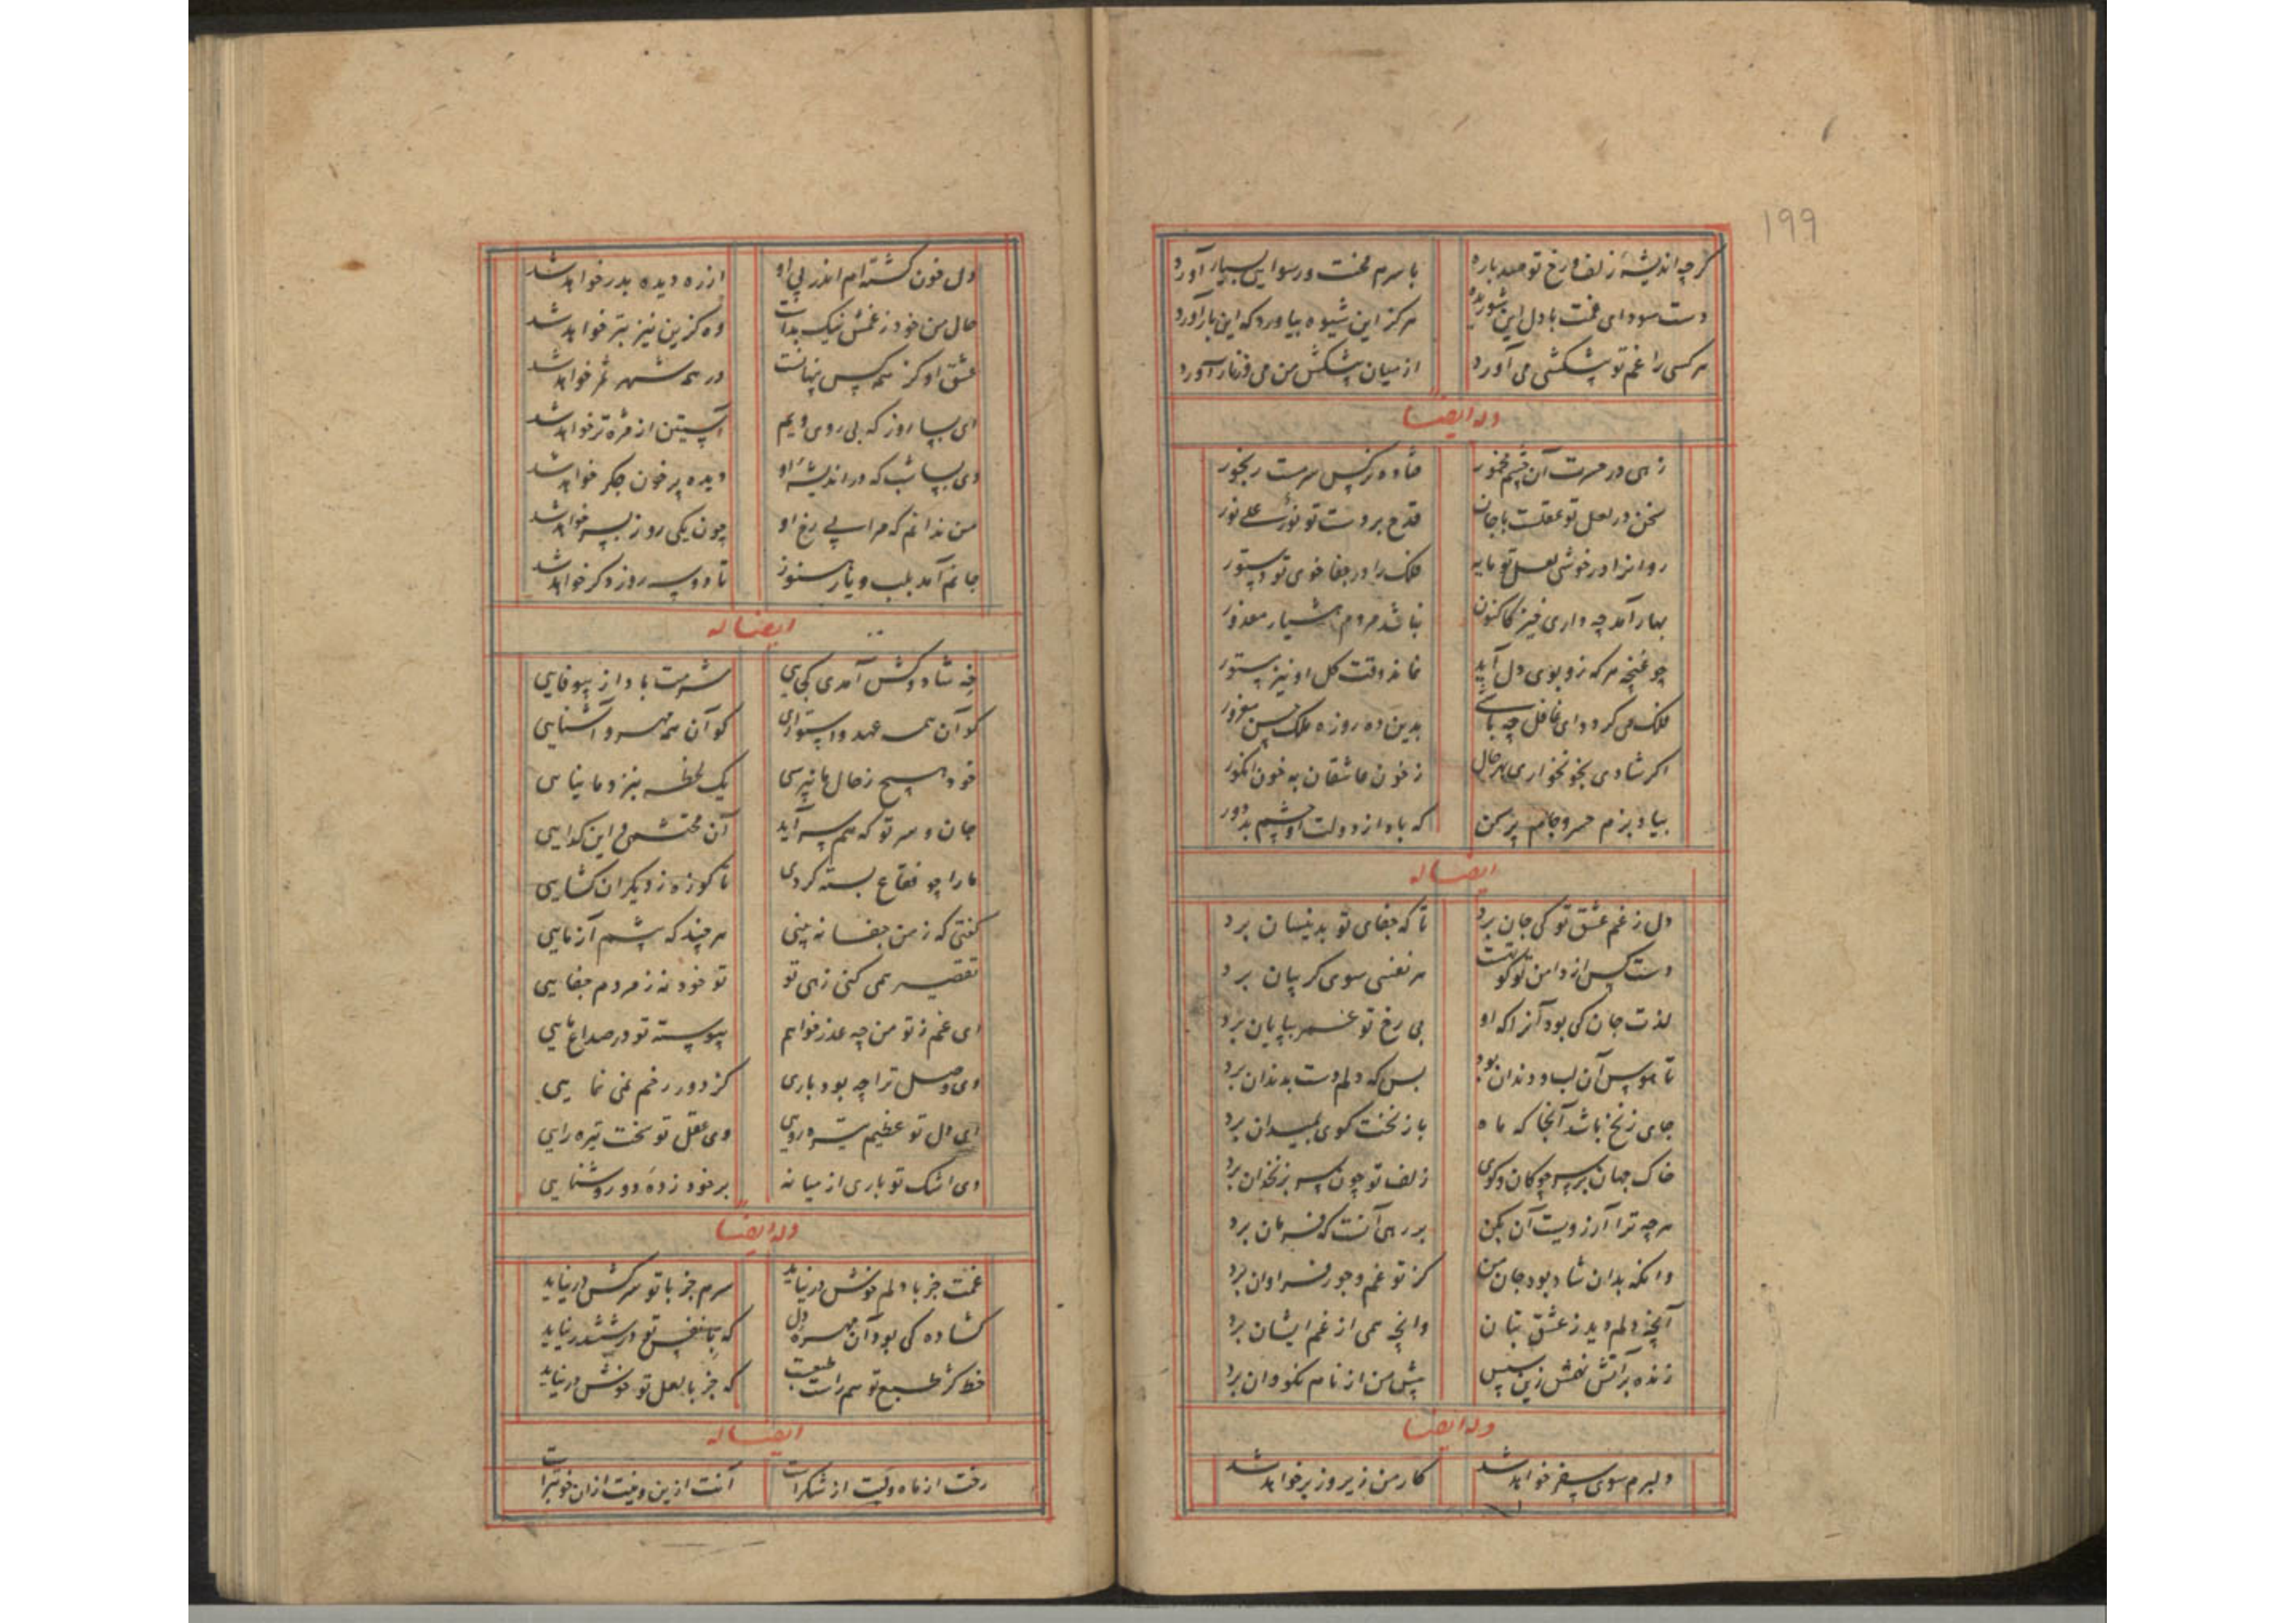 199
گرچه اندیشه زلف و رخ تو صد باره با سرم محنت و رسوایی بسیار آورد
دست سودای غمت با دل این شوریده هرگز این شیوه نیاورد که این بار آورد
هر کسی را غم تو پیشکشی می آورد از میان پیشکش من می و زنار آورد
وله ایضا
زهی در حسرت آن چشم مخمور فتاده نرگس سرمست رنجور
سخن در لعل تو عقلست با جان قدح بر دست تو نور علی نور
روانرا در خوشی لعل تو مایه فلک را در جفا خوی تو دستور
بهار آمد چه داری خیز کاکنون نباشد مردم هشیار معذور
چو غنچه هر که زو بوی دل آید نماند وقت گل او نیز مستور
فلک می گردد ای غافل چه باشی بدین ده روزه ملک حسن مغرور
اگر شادی بخونخواری بهر حال ز خون عاشقان به خون انگور
بیاد بزم خسرو جام پر کن که باد از دولت او چشم بد دور
ایضا له
دل ز غم عشق تو کی جان برد تا که جفای تو بدینسان برد
دست کس از دامن تو هر نفسی سوی گریبان برد
لذت جان کی بود آنرا که او بی رخ تو عمر بپایان برد
تا هوس آن لب و دندان بود بس که دلم دست بدندان برد
جای زنخ باشد آنجا که ماه با زنخت گوی بمیدان برد
خاک جهان بر سر چوگان و گوی زلف تو چون سر بزنخدان برد
هرچه ترا آرزویست آن بکن بر رهی آنست که فرمان برد
وانکه بدان شاد بود جان من کز تو غم و جور فراوان برد
آنچه دلم دید ز عشق بتان وانچه همی از غم ایشان برد
زنده بر آتش نهمش زین سپس پیش من ار نام نکو وان برد
وله ایضا
دلبرم سوی سفر خواهد شد کار من زیر و زبر خواهد شد
دل خون گشته ام اندر پی او از ره دیده بدر خواهد شد
حال من خود ز غمش نیک بدست وه کزین نیز بتر خواهد شد
عشق او کز همه کس پنهانست در همه شهر سمر خواهد شد
ای بسا روز که بی روی ویم آستین از مژه تر خواهد شد
وی بسا شب که در اندیشه او دیده پر خون جگر خواهد شد
من ندانم که مرا بی رخ او چون یکی روز بسر خواهد شد
جانم آمد بلب و یار هنوز تا دو سه روز دگر خواهد شد
ایضا له
خه شاد و کش آمدی کجایی شرمت بادا ز بیوفایی
کو آن همه عهد و استواری کو آن همه مهر و آشنایی
خود هیچ ز حال ما نپرسی یک لحظه بنزد ما نیایی
جان و سر تو که هم سر آید آن محتشمی و این گدایی
ما را چو فقاع بسته کردی تا کوزه ز دیگران گشایی
گفتی که ز من جفا نه بینی هر چند که چشم آزمایی
تقصیر همی کنی زهی تو تو خود نه ز مردم جفایی
ای غم ز تو من چه عذر خواهم پیوسته تو در صداع مایی
وی وصل ترا چه بود باری کز دور رخم نمی نمایی
ای دل تو عظیم تیره رویی وی عقل تو سخت تیره رایی
وی اشک تو باری از میانه بر خود زده دو روشنایی
وله ایضا
غمت جز با دلم خوش در نیاید سرم جز با تو سرکش در نیاید
گشاده کی بود آن مهره دل که با نقش تو در ششدر نیاید
خط کژ طبع تو هم راست طبعست که جز با لعل تو خوش در نیاید
ایضا له
رخت از ماه و لبت از شکرست آنت ازین وینت ازان خوبترست